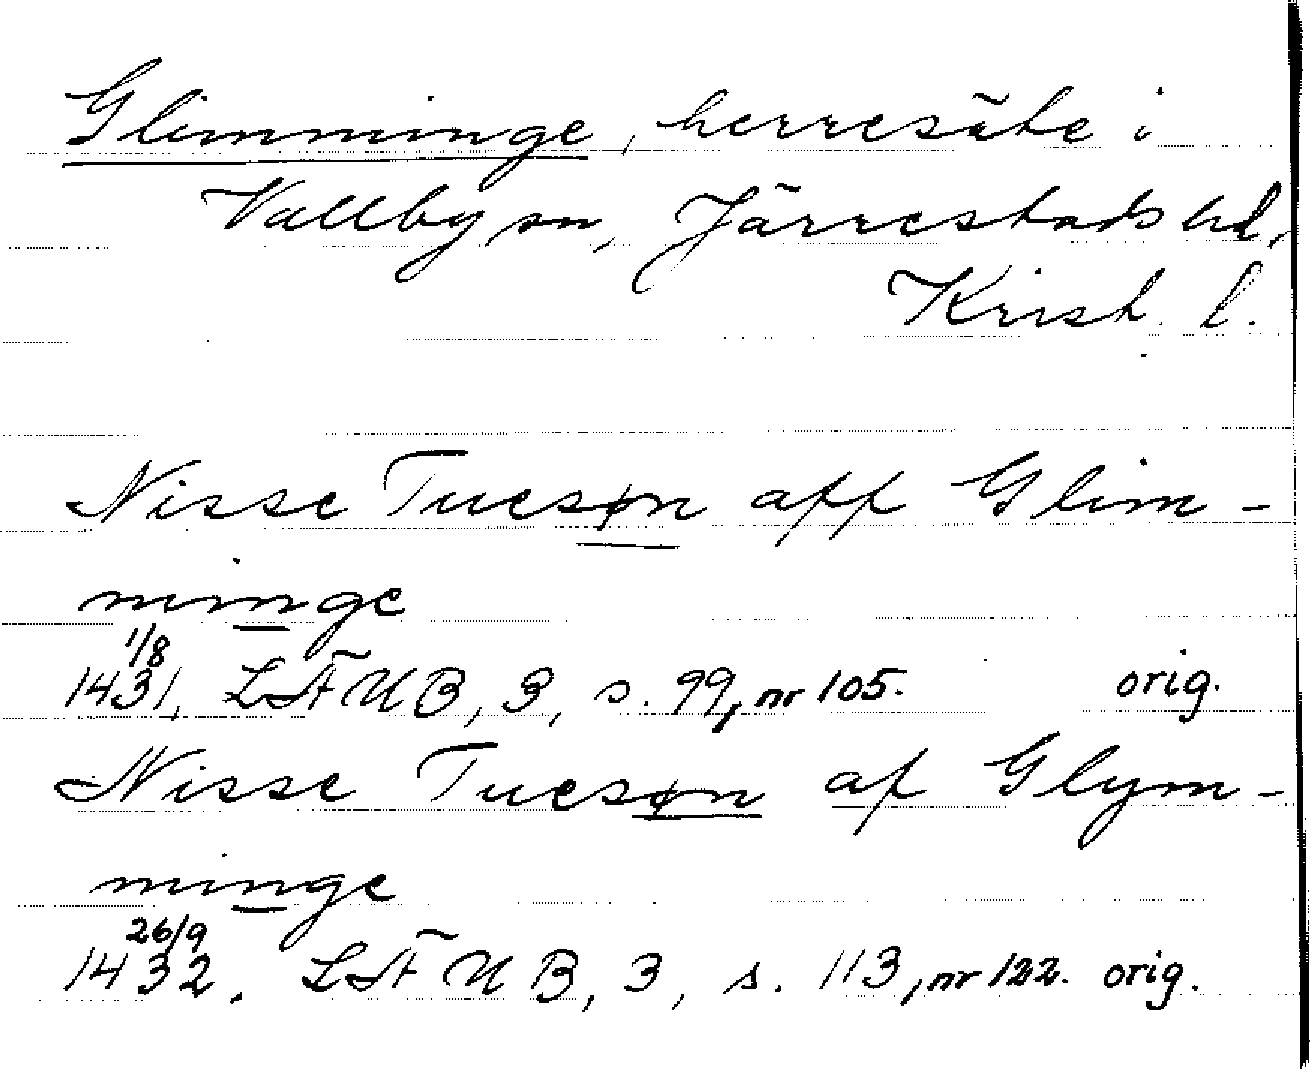 Glimminge, herresäte i
Vallby sn, Järrestads hd,
Krist. l.
Nisse Tuesøn aff Glim-
minge
1/8
1431, LÄUB, 3, s. 99, nr 105. orig.
Nisse Tuesøn af Glym-
minge
26/9
1432. LÄUB, 3, s. 113, nr 122. orig.